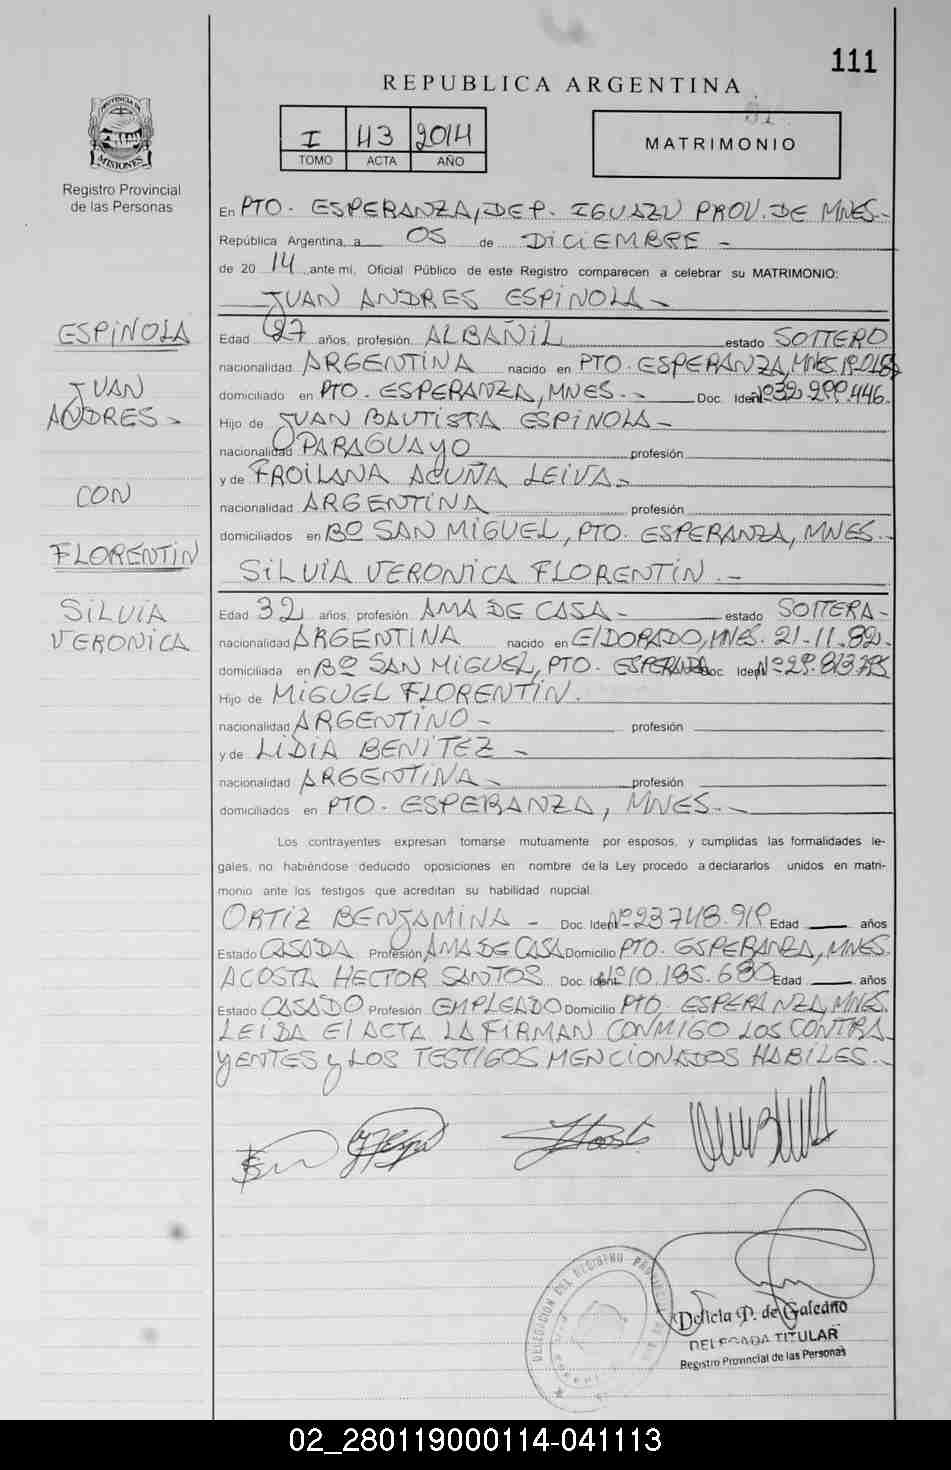 111
REPUBLICA ARGENTINA
I 43 2014
TOMO ACTA AÑO
MATRIMONIO
PROVINCIA DE
MISIONES
Registro Provincial
de las Personas
En PTO. ESPERANZA, DEP. IGUAZU PROV. DE MNES.-
República Argentina, a 05 de DICIEMBRE -
de 20 14, ante mi, Oficial Público de este Registro comparecen a celebrar su MATRIMONIO:
JUAN ANDRES ESPINOLA -
ESPINOLA
JUAN
ANDRES -
CON
FLORENTIN
SILVIA
VERONICA
Edad 27 años, profesión ALBAÑIL estado SOLTERO
nacionalidad ARGENTINA nacido en PTO. ESPERANZA, MNES
domiciliado en PTO. ESPERANZA, MNES. - Doc. Ident Nº 32.299.446.
Hijo de JUAN BAUTISTA ESPINOLA -
nacionalidad PARAGUAYO profesión
y de FROILANA ACUÑA LEIVA -
nacionalidad ARGENTINA profesión
domiciliados en Bº SAN MIGUEL, PTO. ESPERANZA, MNES. -
SILVIA VERONICA FLORENTIN. -
Edad 32 años profesión AMA DE CASA - estado SOLTERA -
nacionalidad ARGENTINA nacido en ElDORADO, MNES. 21-11-82.
domiciliada en Bº SAN MIGUEL, PTO. ESPERANZA Doc. Ident Nº 29.813.795
Hijo de MIGUEL FLORENTIN.
nacionalidad ARGENTINO - profesión
y de LIDIA BENITEZ -
nacionalidad ARGENTINA - profesión
domiciliados en PTO. ESPERANZA, MNES. -
Los contrayentes expresan tomarse mutuamente por esposos, y cumplidas las formalidades le-
gales, no habiéndose deducido oposiciones en nombre de la Ley procedo a declararlos unidos en matri-
monio ante los testigos que acreditan su habilidad nupcial.
ORTIZ BENJAMINA - Doc. Ident Nº 23748.919 Edad años
Estado CASADA Profesión AMA DE CASA Domicilio PTO. ESPERANZA, MNES.
ACOSTA HECTOR SANTOS Doc. Ident Nº 10.185.680 Edad años
Estado CASADO Profesión EMPLEADO Domicilio PTO. ESPERANZA, MNES.
LEIDA El ACTA LA FIRMAN CONMIGO LOS CONTRA
YENTES y LOS TESTIGOS MENCIONADOS HABILES. -
DELEGACION DEL REGISTRO PROVINCIAL DE LAS
Delicia P. de Galeano
DELEGADA TITULAR
Registro Provincial de las Personas
02_280119000114-041113